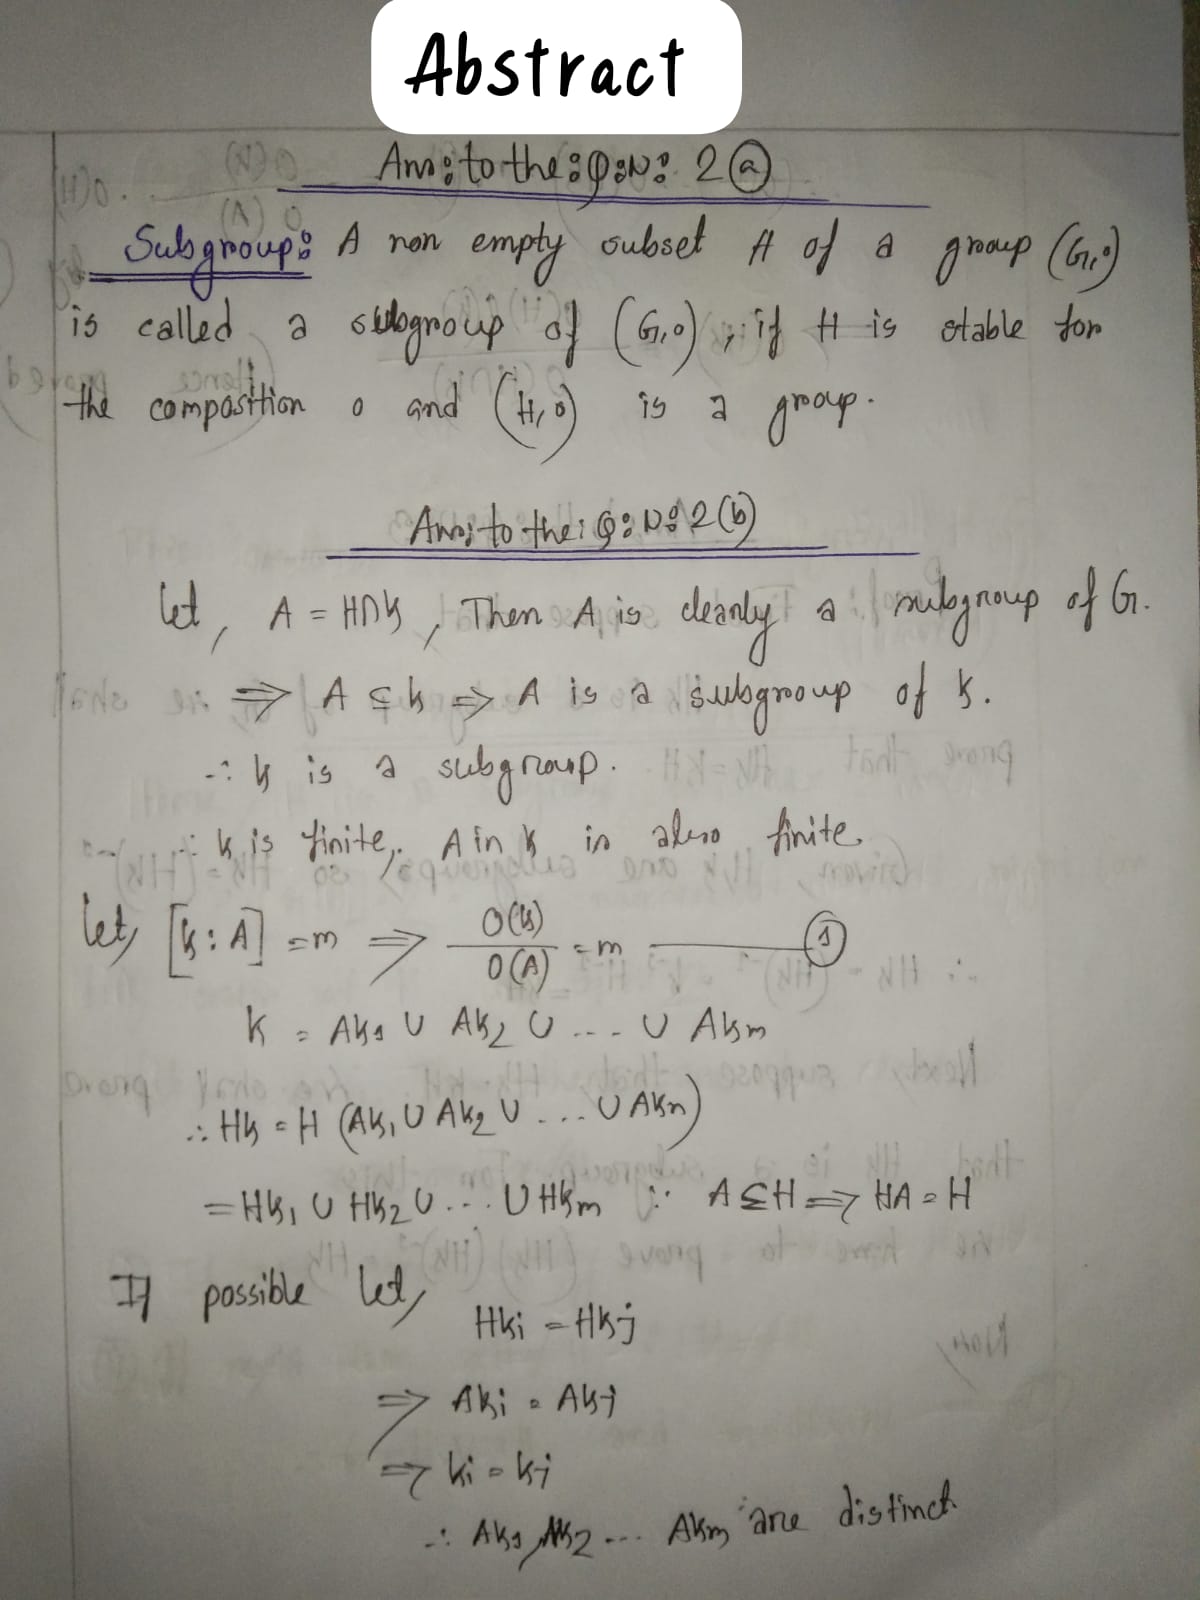 Abstract
Ans: to the: Q: N: 2 (a)
Subgroup: A non empty subset H of a group (G, o)
is called a subgroup of (G, o), if H is stable for
the composition o and (H, o) is a group.
Ans: to the: Q: N: 2(b)
Let, A = H∩K, Then A is clearly a subgroup of G.
⇒ A ⊆ K ⇒ A is a subgroup of K.
∴ K is a subgroup.
∵ K is finite, A in K is also finite.
Let, [K : A] = m ⇒ O(K)/O(A) = m —— (1)
K = Ak1 ∪ Ak2 ∪ .... ∪ Akm
∴ HK = H (Ak1 ∪ Ak2 ∪ .... ∪ Akn)
= Hk1 ∪ Hk2 ∪ .... ∪ Hkm ∵ A ⊆ H ⇒ HA = H
If possible let,
Hki = Hkj
⇒ Aki = Akj
⇒ ki = kj
∴ Ak1, Ak2 .... Akm are distinct